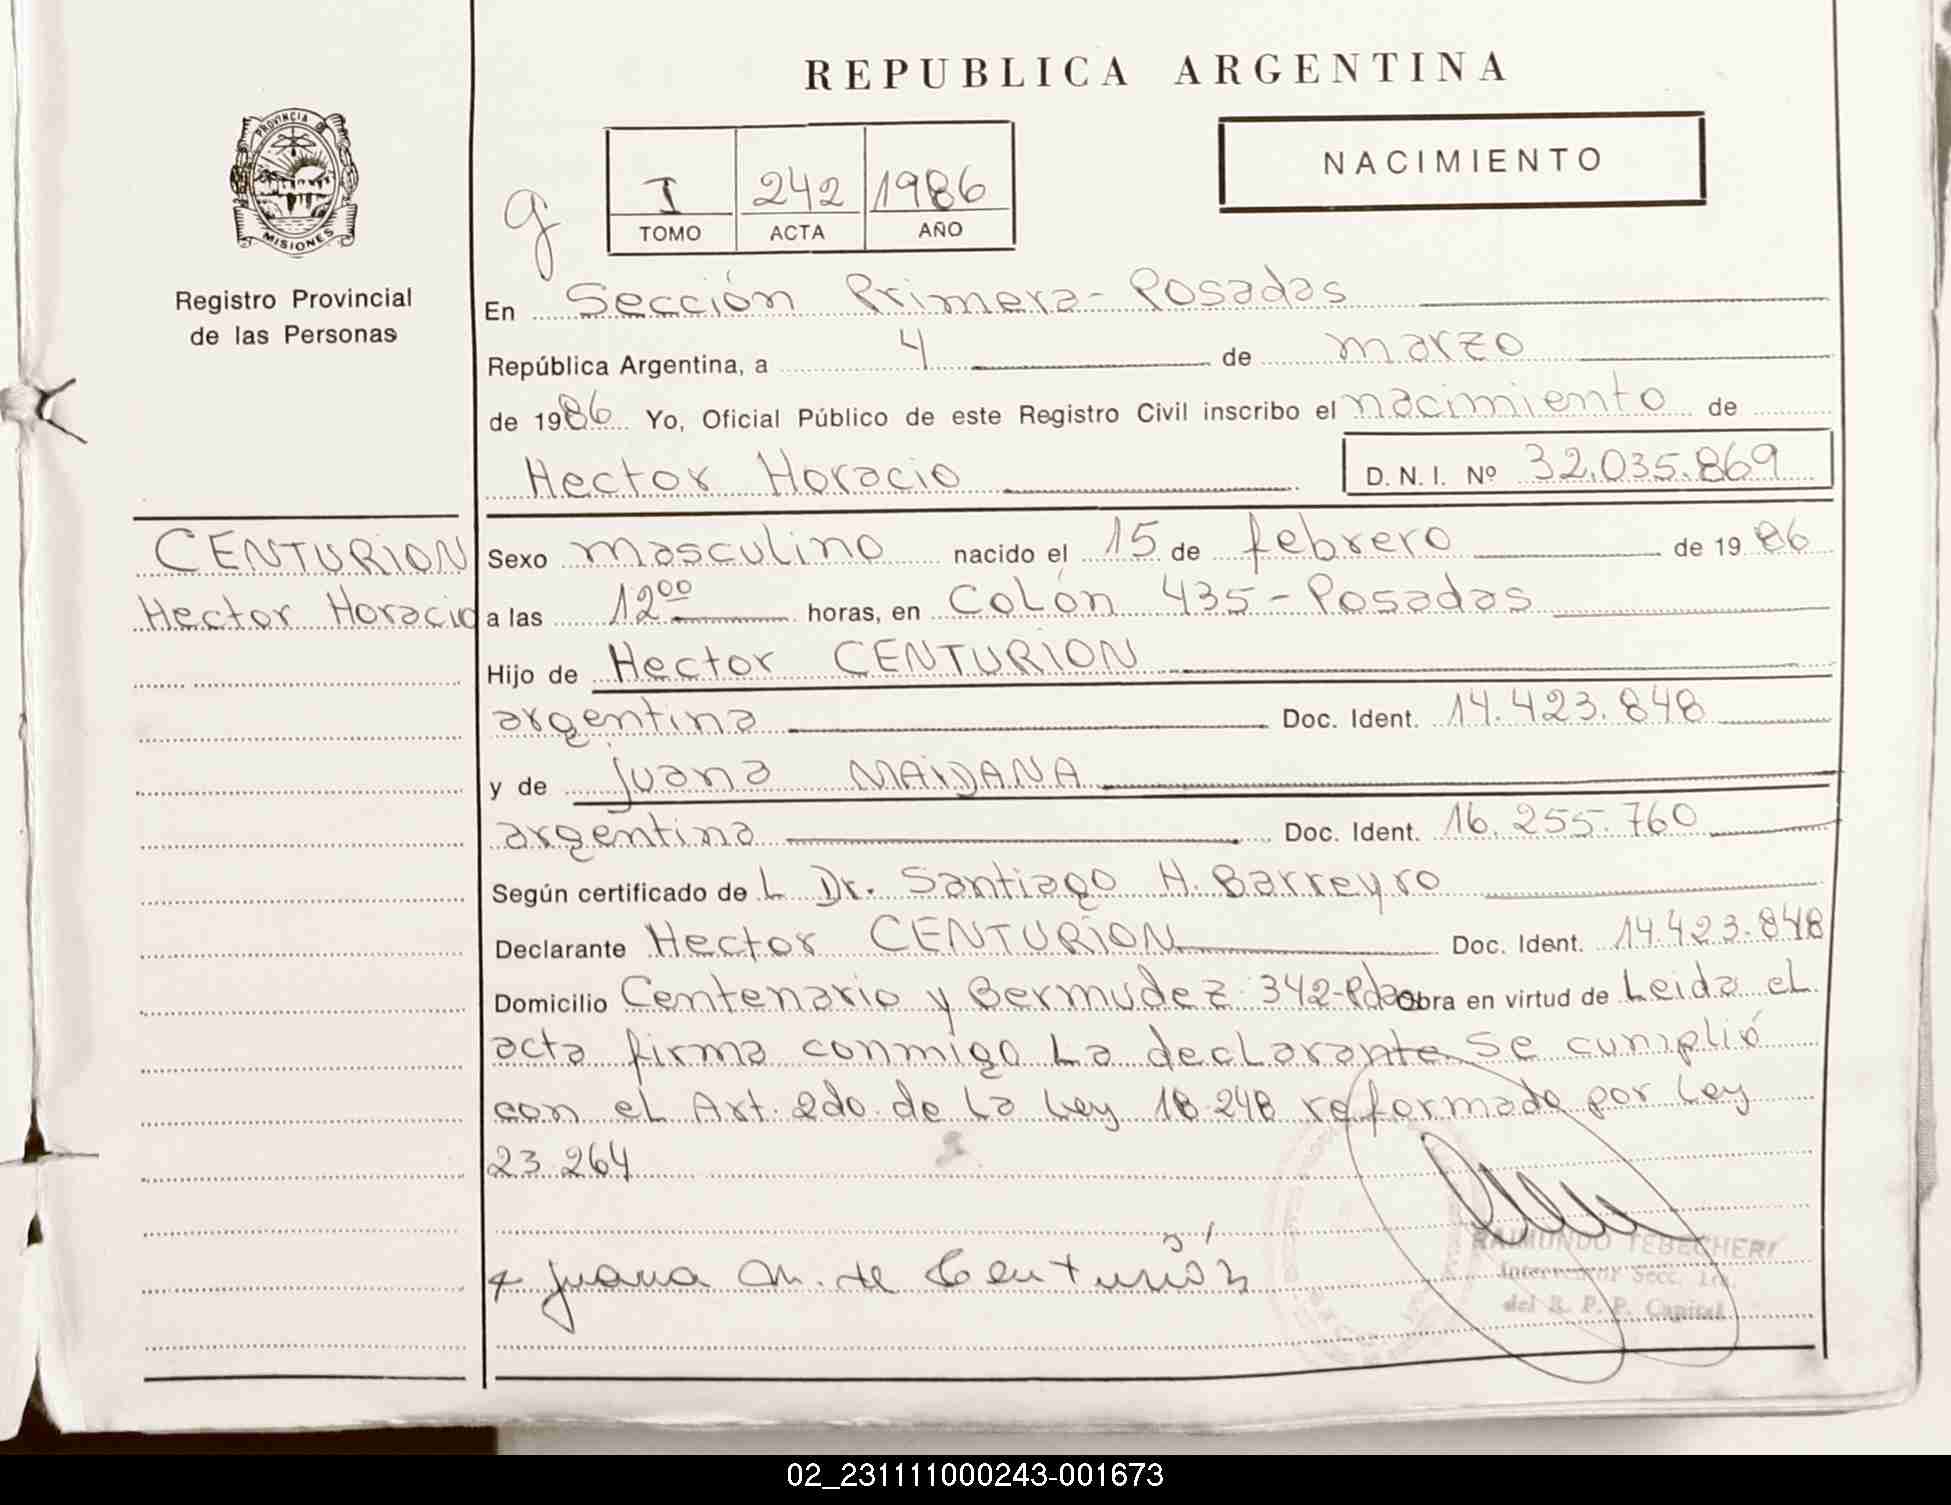 REPUBLICA ARGENTINA
PROVINCIA DE
MISIONES
Registro Provincial
de las Personas
NACIMIENTO
g
I 242 1986
TOMO ACTA AÑO
En Sección Primera - Posadas
República Argentina, a 4 de marzo
de 1986 Yo, Oficial Público de este Registro Civil inscribo el nacimiento de
Hector Horacio D. N. I. Nº 32.035.869
CENTURION
Hector Horacio
Sexo masculino nacido el 15 de febrero de 1986
a las 12 00 horas, en Colón 435 - Posadas
Hijo de Hector CENTURION
argentina Doc. Ident. 14.423.848
y de Juana MAIDANA
argentina Doc. Ident. 16.255.760
Según certificado de L Dr. Santiago H. Barreyro
Declarante Hector CENTURION Doc. Ident. 14.423.848
Domicilio Centenario y Bermudez 342-Pdas Obra en virtud de Leida el
acta firma conmigo la declarante se cumplió
con el Art. 2do. de la Ley 18.248 reformada por Ley
23.264
Juana M. de Centurión
RAIMUNDO TEBECHERI
Interventor Secc. 1ra.
del R. P. P. Capital
02_231111000243-001673